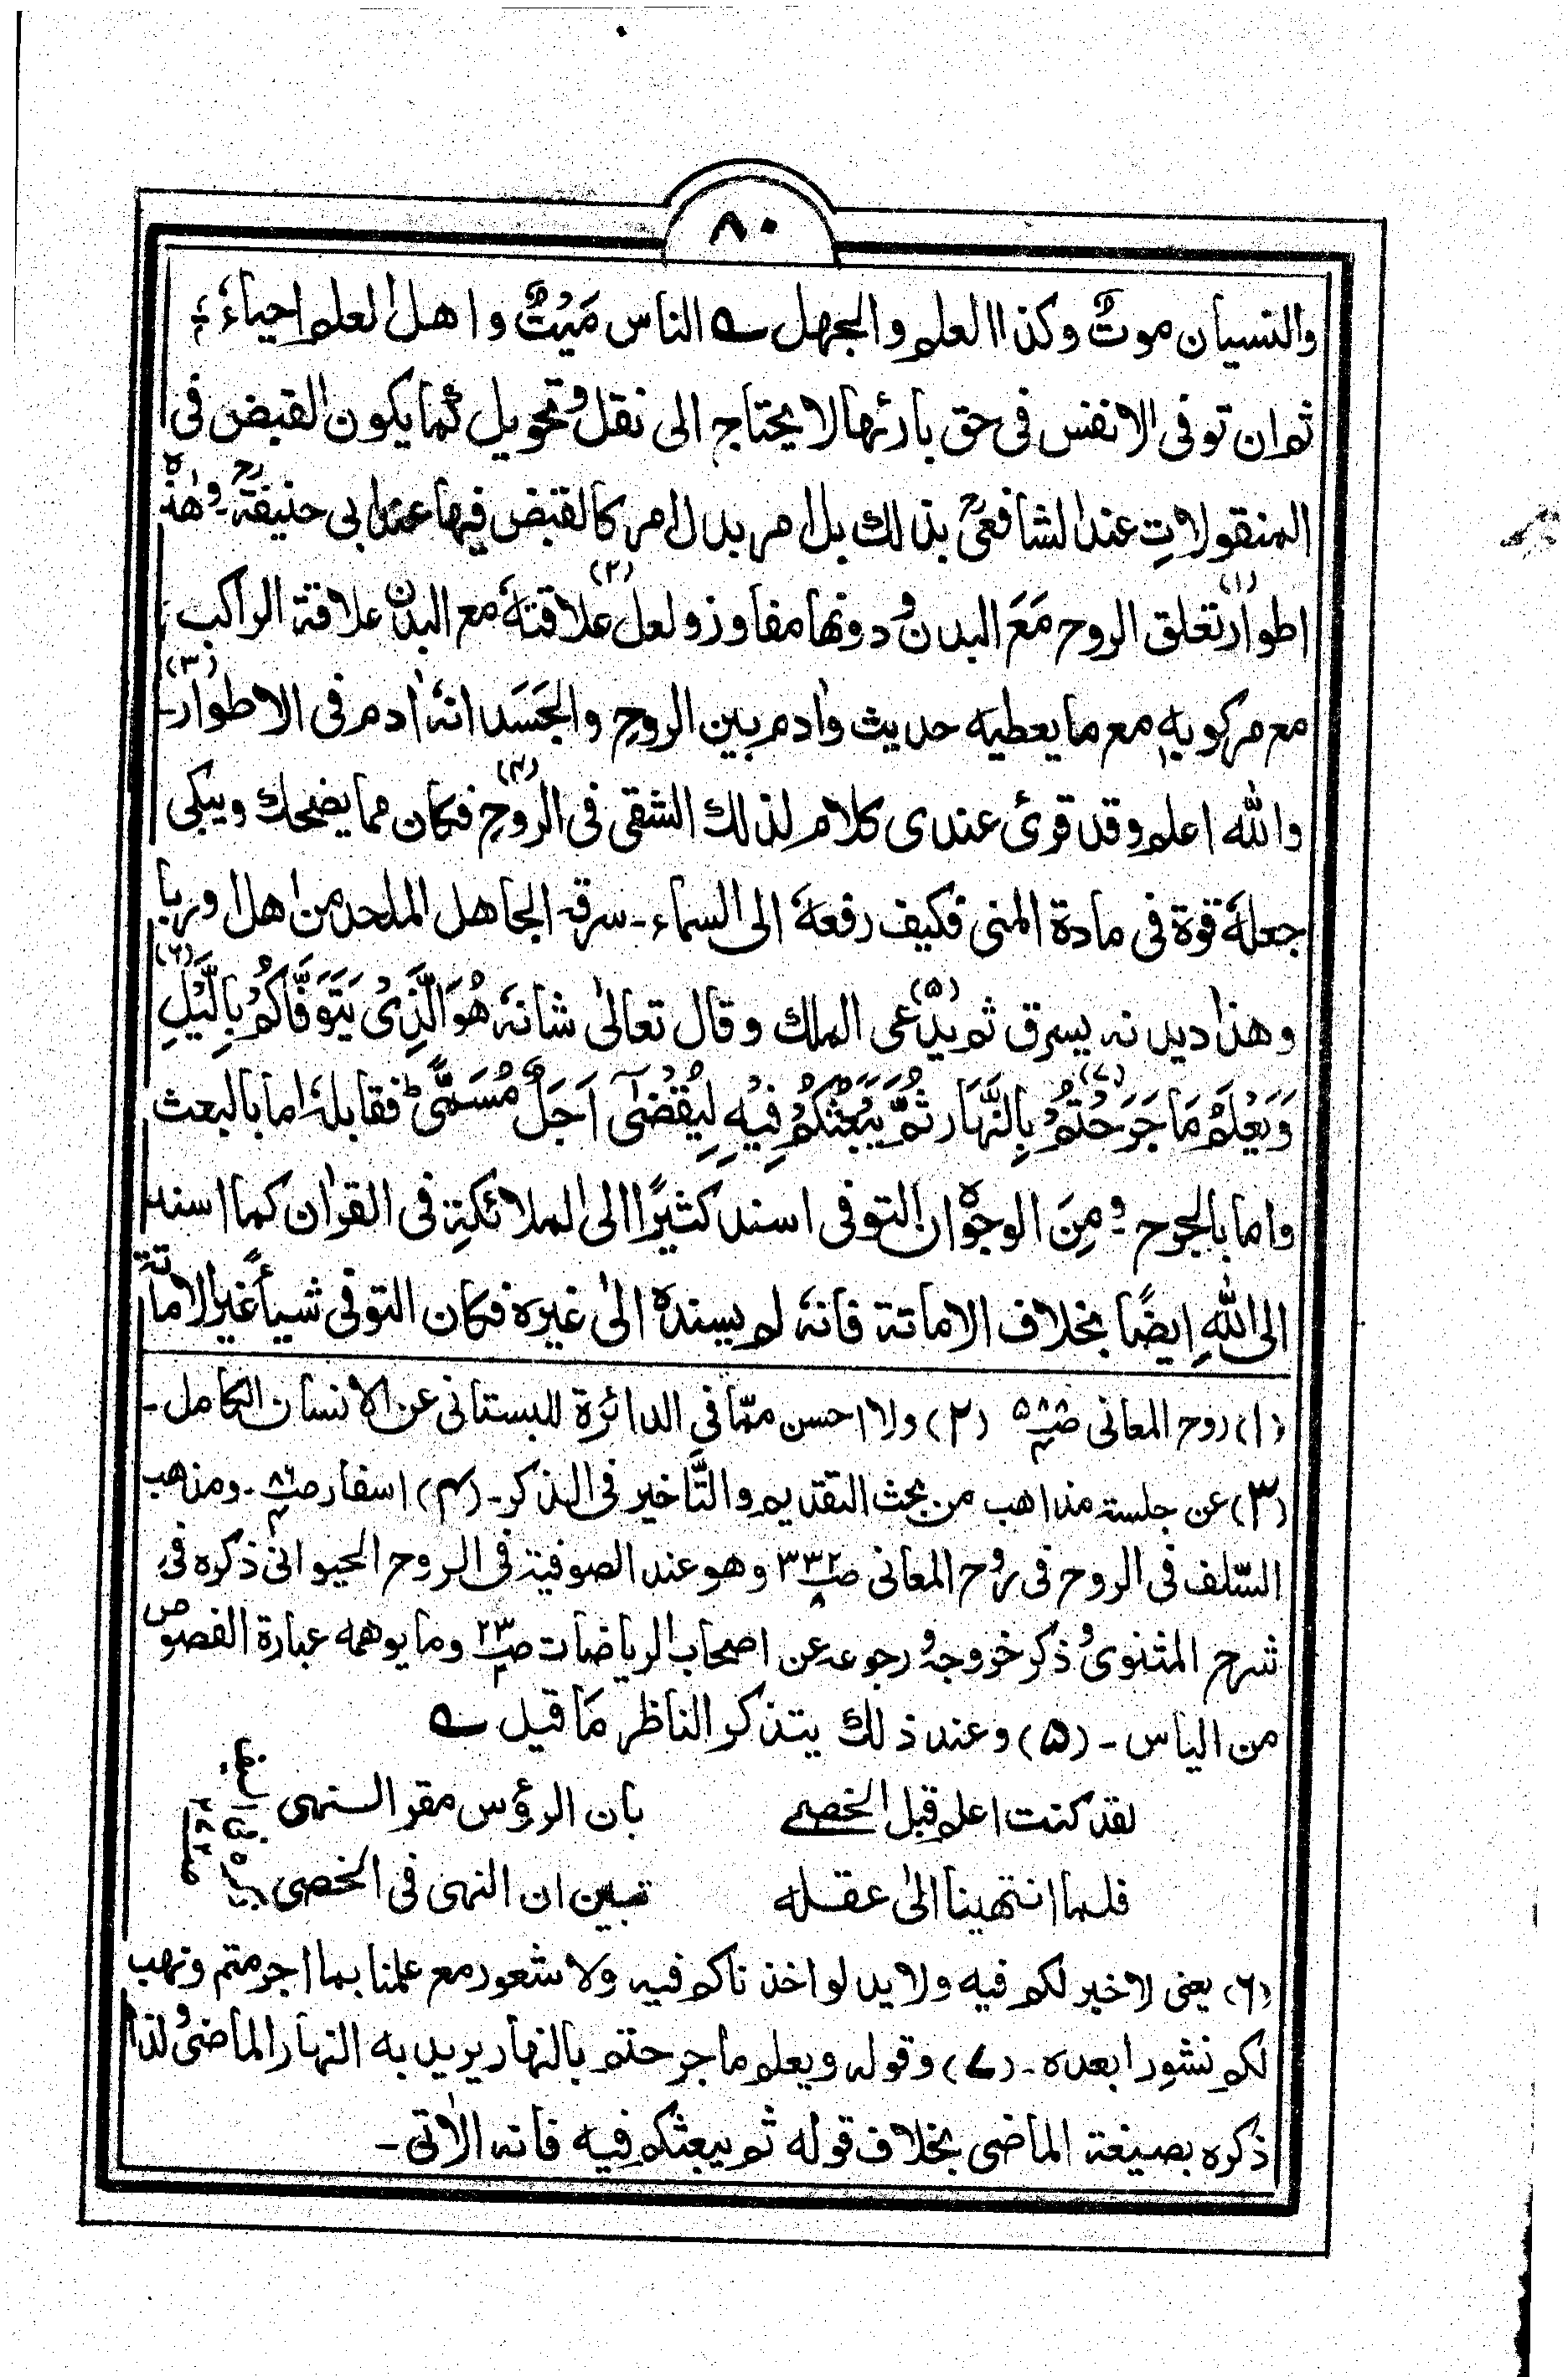 ٨٠
والنسيان موتٌ وكذا العلم والجهل ؎ الناس مَيْتٌ واهل العلم احياءُ
ثم ان توفى الانفس فى حق بارئها لا يحتاج الى نقل وتحويل كما يكون القبض فى
المنقولاتِ عند الشافعیؒ بذلك بل امر بدل امر كالقبض فيها عند ابی حنيفةؒ۔ وهٰذه
اطوارُ(۱) تعلق الروح مَعَ البدن ودونها مفاوز ولعل(۲) علاقتهٗ مع البدن علاقة الراكب
مع مركوبهٖ مع ما يعطيه حديث واٰدم بين الروحِ والجَسَد انهٗ اٰدم فى الاطوار(۳)۔
والله اعلم وقد قرئ عندى كلام لذلك الشقى فى الروحِ(۴) فكان مما يضحك ويبكى
جعلهٗ قوة فى مادة المنى فكيف رفعهٗ الى السماء۔ سرقه الجاهل الملحد من اهل اوربا
وهذا ديدنه يسرق ثم يدّعى(۵) الملك وقال تعالىٰ شانهٗ هُوَ الَّذِىْ يَتَوَفّٰاكُمْ بِالَّيْلِ(۶)
وَيَعْلَمُ مَا جَرَحْتُمْ(۷) بِالنَّهَارِ ثُمَّ يَبْعَثُكُمْ فِيْهِ لِيُقْضٰۤى اَجَلٌ مُّسَمًّى ط فقابلهٗ اما بالبعث
واما بالجرح۔ ومِنَ الوجوه ان التوفى اسند كثيرًا الى الملائكةِ فى القراٰن كما اسند
الى اللهِ ايضًا بخلاف الاماتة فانهٗ لم يسنده الىٰ غيره فكان التوفى شيأً غير الاماتة
(۱) روح المعانى ص۵۸۸ (۲) ولا احسن ممّا فى الدائرة للبستانى عن الانسان الكامل۔
(۳) عن جلسة مذاهب من بحث التقديم والتَّاخير فى الذكر۔ (۴) اسفار ص۸۶۔ ومذاهب
السّلف فى الروح فى رُوح المعانى ص۳۳۲ وهو عند الصوفية فى الروح الحيوانى ذكره فى
شرح المثنوى وذكر خروجهٗ ورجوعه عن اصحاب الرياضات ص۲۳ وما يوهمه عبارة الفصوص
من الياس۔ (۵) وعند ذلك يتذكر الناظر مَا قيل ؎
لقد كنت اعلم قبل الخصى بان الرؤس مقر النهى
فلما انتهينا الىٰ عقله تبين ان النهى فى الخصى
(۶) يعنى لا خير لكم فيه ولا يد لو اخذناكم فيه ولا شعور مع علمنا بما اجرمتم ونهب
لكم نشورا بعده۔ (۷) وقوله ويعلم ما جرحتم بالنهار يريد به النهار الماضى ولذا
ذكره بصيغة الماضى بخلاف قوله ثم يبعثكم فيه فانه الاٰتى۔